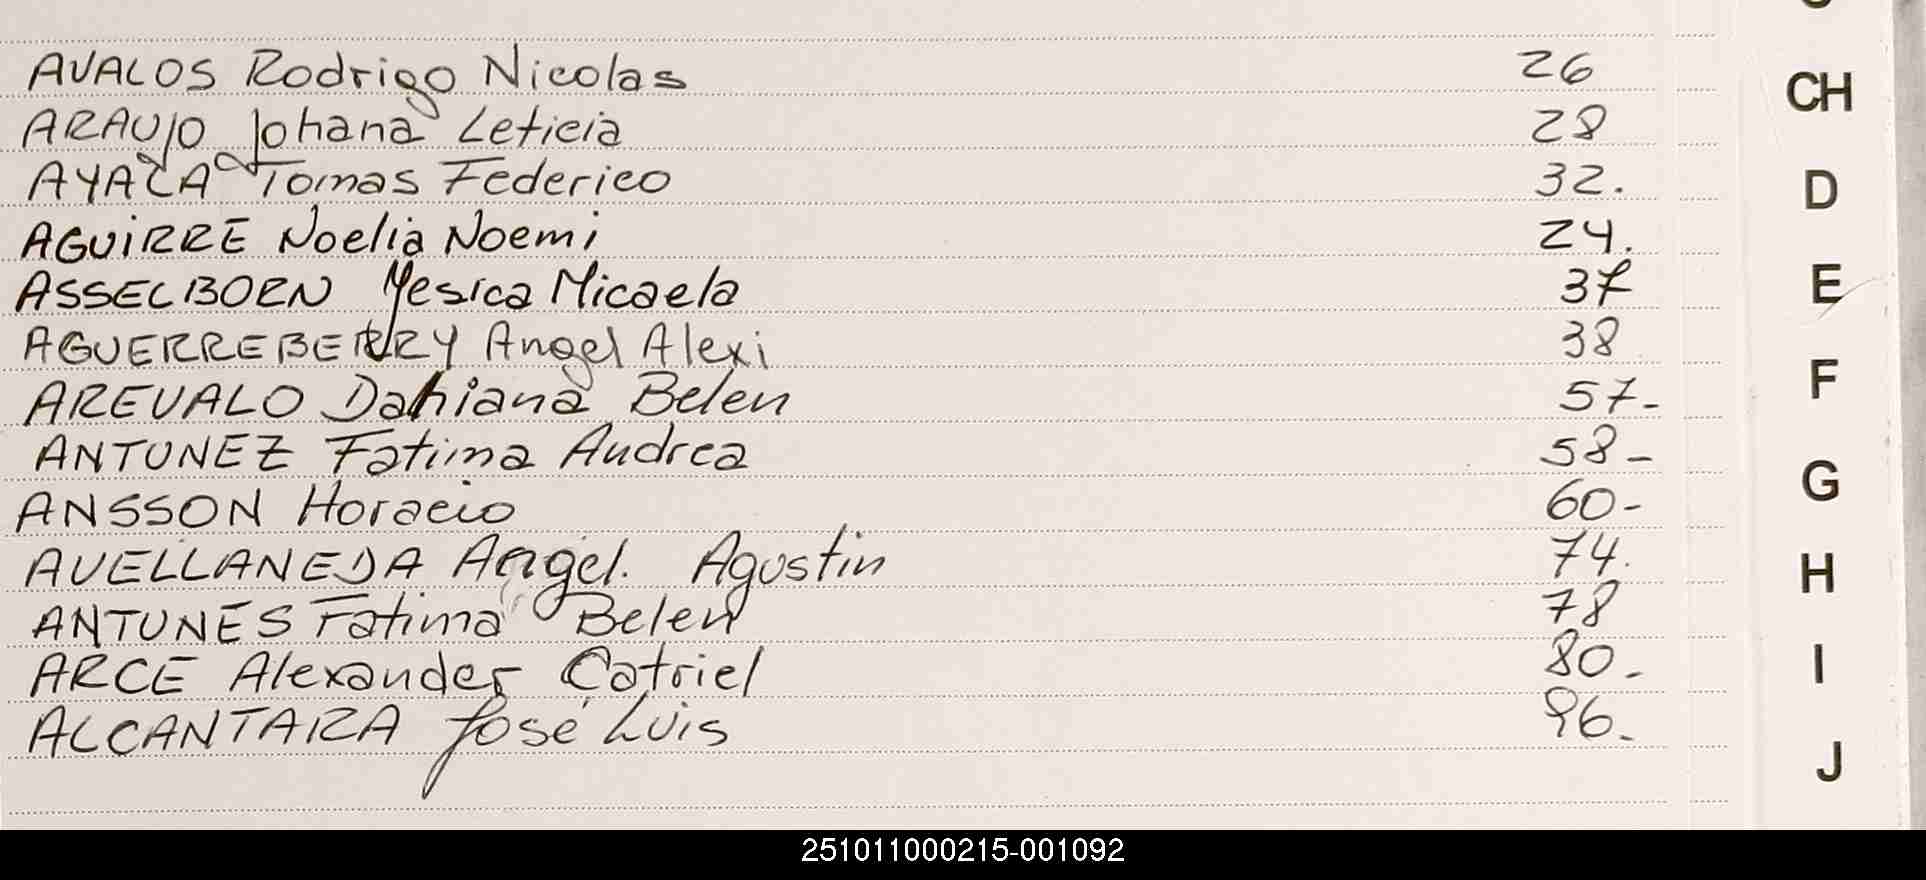 AVALOS Rodrigo Nicolas 26
ARAUJO Johana Leticia 28
AYALA Tomas Federico 32.
AGUIRRE Noelia Noemi 24.
ASSELBORN Yesica Micaela 37
AGUERREBERRY Angel Alexi 38
AREVALO Dahiana Belen 57-
ANTUNEZ Fatima Andrea 58-
ANSSON Horacio 60-
AVELLANEDA Angel. Agustin 74.
ANTUNES Fatima Belen 78
ARCE Alexander Catriel 80.
ALCANTARA José Luis 96.
CH
D
E
F
G
H
I
J
251011000215-001092